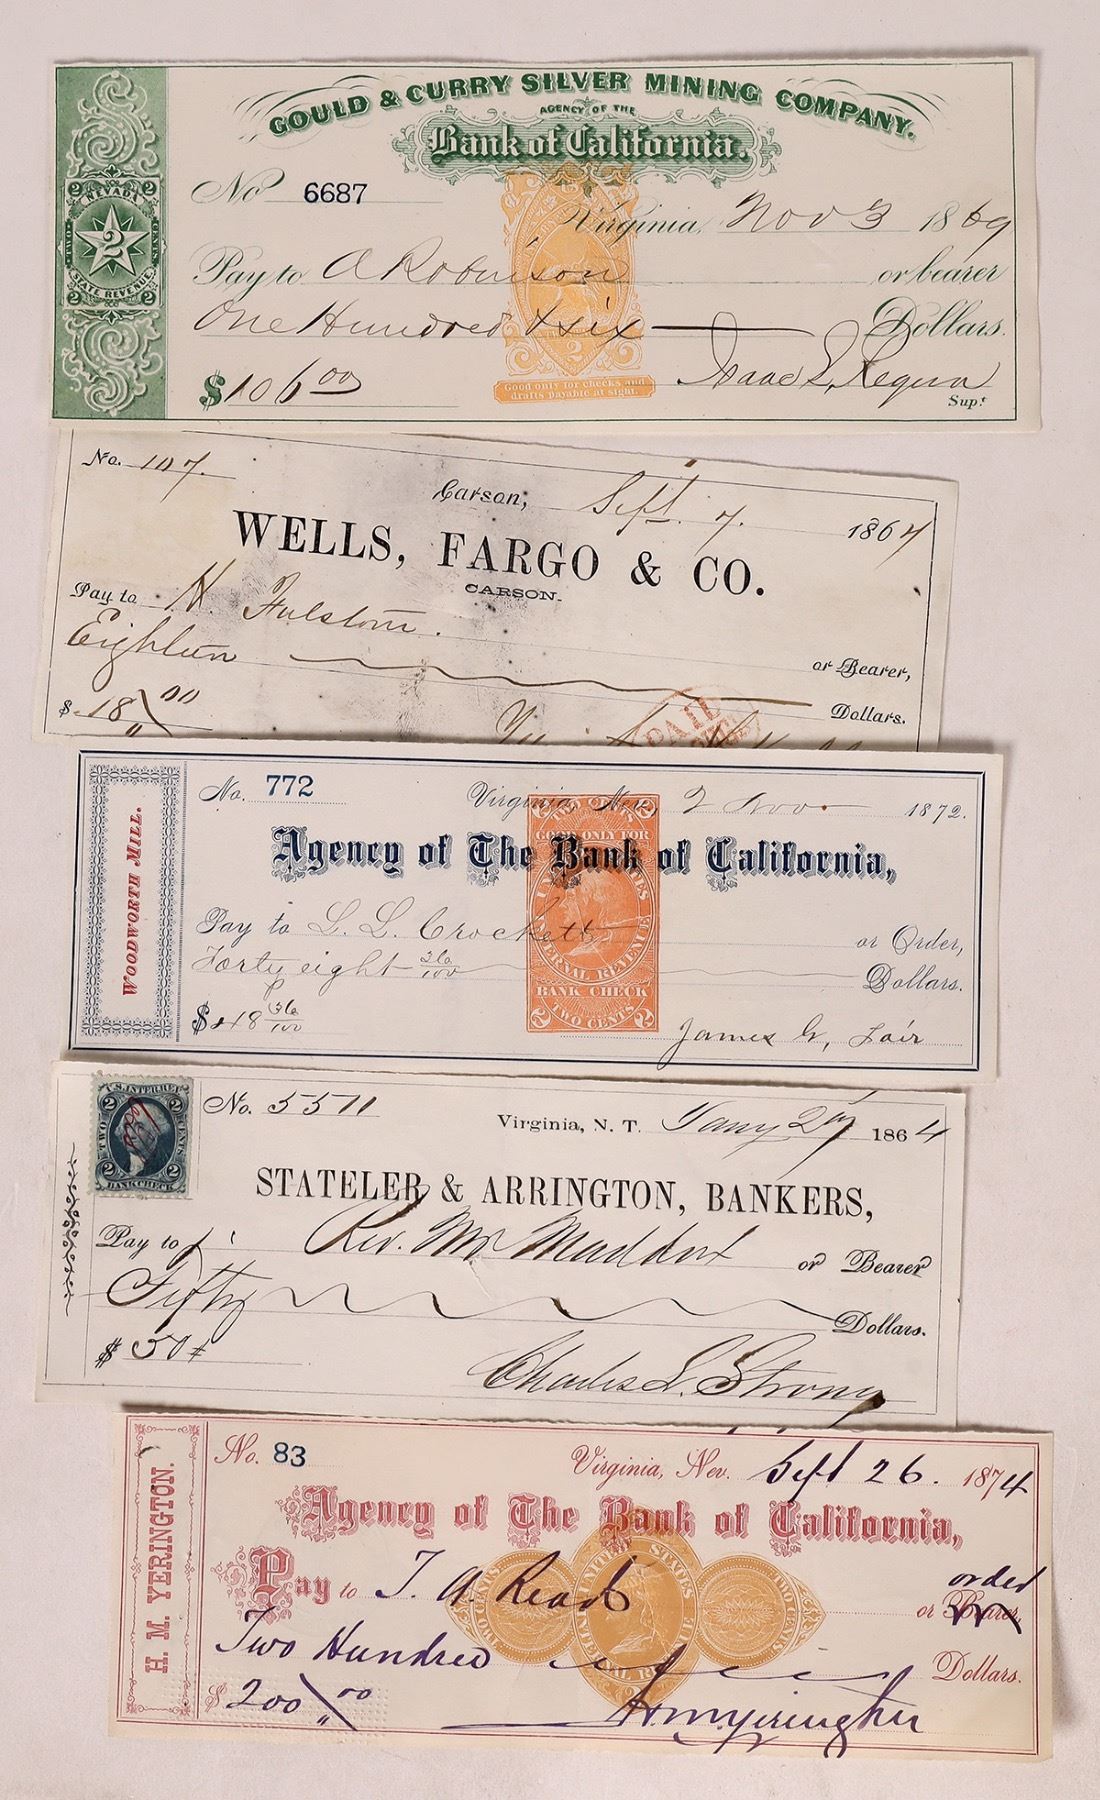 GOULD & CURRY SILVER MINING COMPANY.
AGENCY OF THE
Bank of California.
No 6687
Virginia, Nov 3 1869
Pay to A Robinson or bearer
One Hundred & six Dollars.
$106 00
Isaac L. Requa
Supt
2 NEVADA 2
TWO 2 CENTS
STATE REVENUE
2 2
2
Good only for checks and
drafts payable at sight.
No. 107.
Carson, Sept. 7. 1864
WELLS, FARGO & CO.
CARSON.
Pay to H. Fulstone.
Eighteen or Bearer,
Dollars.
$ 18 00
PAID
WOODWORTH MILL.
No. 772
Virginia, Nev., 2 Nov. 1872.
Agency of The Bank of California,
Pay to L. L. Crockett or Order,
Forty eight 36/100 Dollars.
$48 36/100
James G. Fair
2 TWO CENTS 2
GOOD ONLY FOR
UNITED STATES
INTERNAL REVENUE
BANK CHECK
2 TWO CENTS 2
U.S. INTER. REV.
2 2
TWO CENTS
2 2
BANK CHECK
No. 5511
Virginia, N. T. Jany 27 1864
STATELER & ARRINGTON, BANKERS,
Pay to Rev. Mr Maddox or Bearer
Fifty Dollars.
$ 50
Charles L. Strong
H. M. YERINGTON.
No. 83
Virginia, Nev. Sept 26. 1874
Agency of The Bank of California,
Pay to T. A. Read order
or Bearer,
Two Hundred Dollars.
$ 200 00
H M Yerington
TWO CENTS
UNITED STATES
INTERNAL RE
TWO CENTS